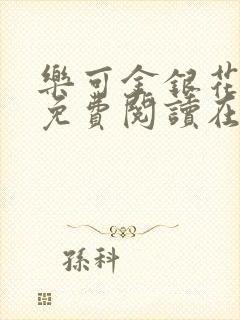 樂可金銀花
免費閱讀在
孫科